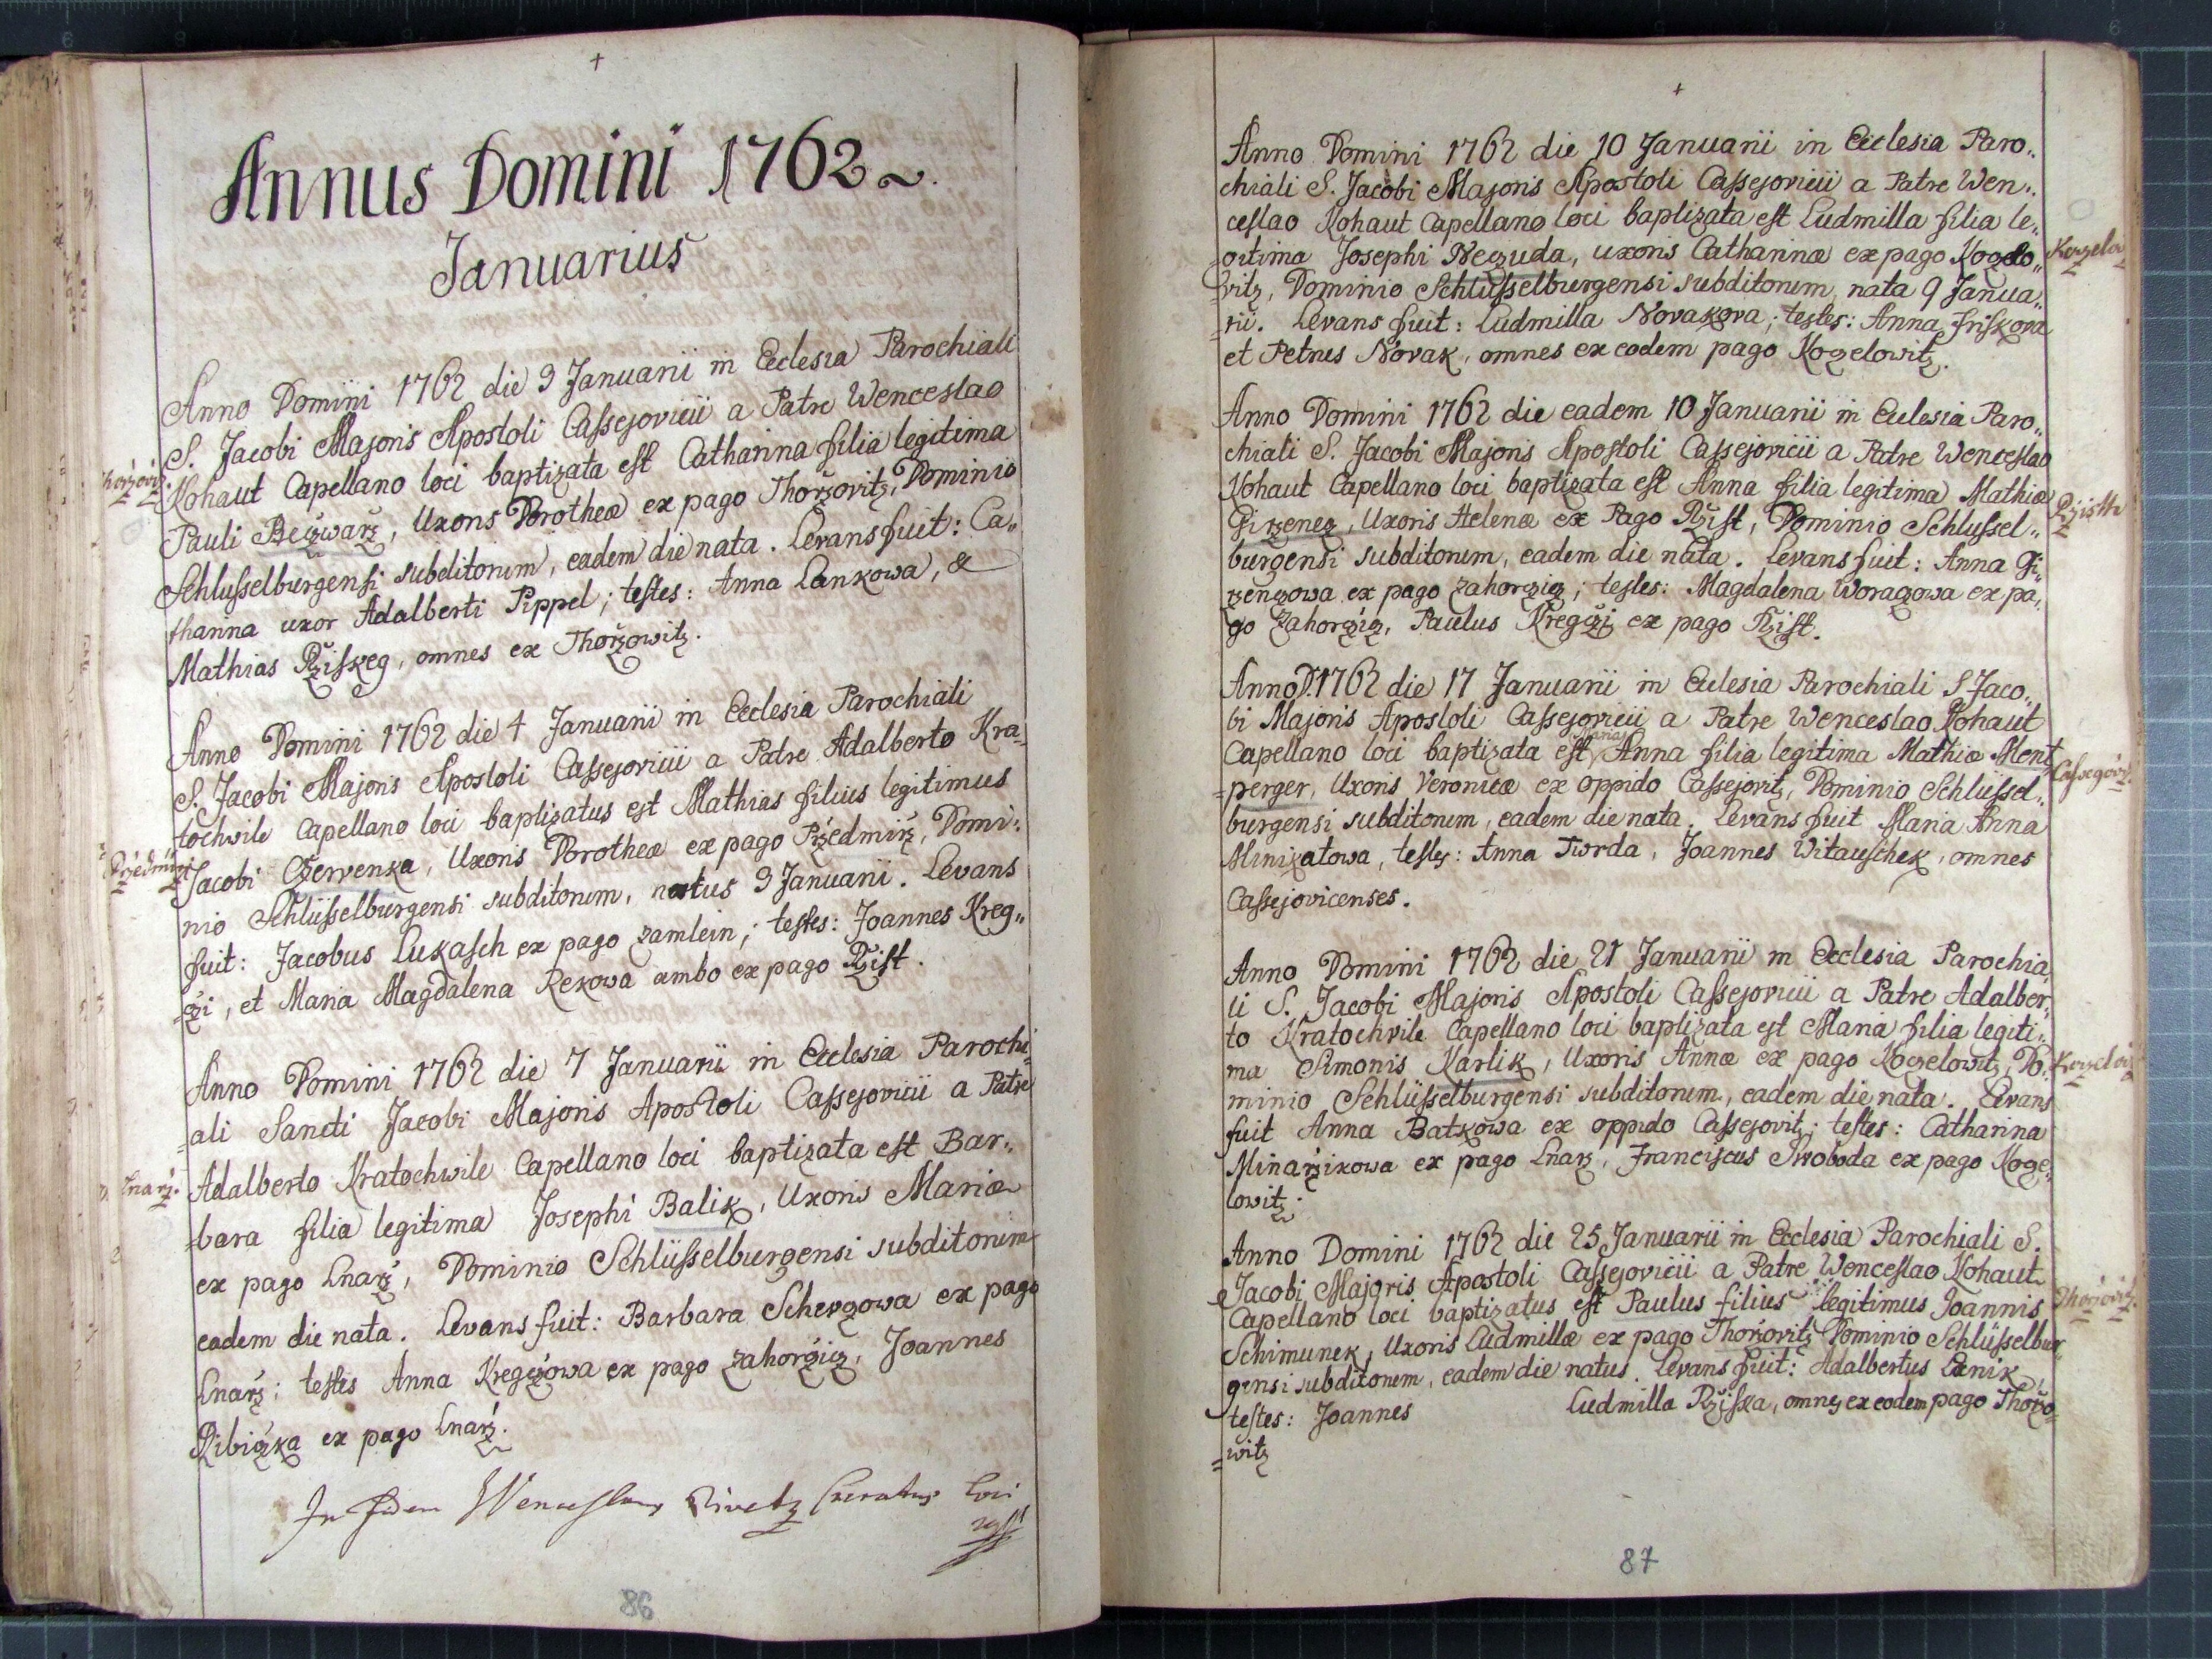 Annus Domini 1762
Januarius
Anno Domini 1762 die 3 Januarii in Ecclesia Parochiali
S. Jacobi Majoris Apostoli Cassejovicii a Patre Wenceslao
Kohaut Capellano loci baptizata est Catharina filia legitima
Pauli Beczwarz, Uxoris Dorotheæ ex pago Thorzovitz, Dominio
Schlusselburgensi subditorum, eadem die nata. Levans fuit: Ca„
tharina uxor Adalberti Pippel; testes: Anna Lankowa, &
Mathias Rziskeg, omnes ex Thorzowitz.
Anno Domini 1762 die 4 Januarii in Ecclesia Parochiali
S. Jacobi Majoris Apostoli Cassejovicii a Patre Adalberto Kra=
tochwile Capellano loci baptizatus est Mathias filius legitimus
Przedmirz
Jacobi Czerwenka, Uxoris Dorotheæ ex pago Przedmirz, Domi„
nio Schlüsselburgensi subditorum, natus 3 Januarii. Levans
fuit: Jacobus Lukasch ex pago Zamlein; testes: Joannes Kreg„
=czi, et Maria Magdalena Rekowa ambo ex pago Rzist.
Anno Domini 1762 die 7 Januarii in Ecclesia Parochi=
=ali Sancti Jacobi Majoris Apostoli Cassejovicii a Patre
Lnarz.
Adalberto Kratochwile Capellano loci baptizata est Bar„
=bara filia legitima Josephi Balik, Uxoris Mariæ
ex pago Lnarz, Dominio Schlüsselburgensi subditorum
eadem die nata. Levans fuit: Barbara Schergowa ex pago
Lnarz; testes Anna Kregczowa ex pago Zahorczicz, Joannes
Ribiczka ex pago Lnarz.
In fidem Wenceslaus Curatus Loci
86
Anno Domini 1762 die 10 Januarii in Ecclesia Paro„
chiali S. Jacobi Majoris Apostoli Cassejovicii a Patre Wen„
ceslao Kohaut Capellano loci baptizata est Ludmilla filia le„
=gitima Josephi Neczuda, uxoris Catharinæ ex pago Kozelo„
vitz, Dominio Schlüsselburgensi subditorum, nata 9 Janua„
=rii. Levans fuit: Ludmilla Novakova; testes: Anna Friskova
et Petrus Novak, omnes ex eodem pago Kozelowitz.
Anno Domini 1762 die eadem 10 Januarii in Ecclesia Paro„
chiali S. Jacobi Majoris Apostoli Cassejovicii a Patre Wenceslao
Kohaut Capellano loci baptizata est Anna filia legitima Mathiæ
Girzenez, Uxoris Helenæ ex Pago Rzist, Dominio Schlussel„
burgensi subditorum, eadem die nata. Levans fuit: Anna Gi„
rzenczowa ex pago Zahorczicz; testes: Magdalena Woraczowa ex pa„
go Zahorczicz, Paulus Kregczi ex pago Rzist.
Anno D. 1762 die 17 Januarii in Ecclesia Parochiali S Jaco„
bi Majoris Apostoli Cassejovicii a Patre Wenceslao Kohaut
Capellano loci baptizata est Maria Anna filia legitima Mathiæ Ment
=perger, Uxoris Veronicæ ex oppido Cassejovitz, Dominio Schlüssel„
burgensi subditorum, eadem die nata. Levans fuit Maria Anna
Minixatowa, testes: Anna Twrda, Joannes Witauschek, omnes
Cassejovicenses.
Anno Domini 1762 die 21 Januarii in Ecclesia Parochia
li S. Jacobi Majoris Apostoli Cassejovicii a Patre Adalber„
to Kratochvile Capellano loci baptizata est Maria filia legiti„
ma Simonis Karlik, Uxoris Annæ ex pago Kozelowitz, Do„
minio Schlüsselburgensi subditorum, eadem die nata. Levans
fuit Anna Batkowa ex oppido Cassejovitz; testes: Catharina
Minarzikowa ex pago Lnarz, Franciscus Swoboda ex pago Koze„
lowitz.
Anno Domini 1762 die 25 Januarii in Ecclesia Parochiali S.
Jacobi Majoris Apostoli Cassejovicii a Patre Wenceslao Kohaut
Capellano loci baptizatus est Paulus filius legitimus Joannis
Schimunek, Uxoris Ludmillæ ex pago Thorzovitz Dominio Schlüsselbur„
gensi subditorum, eadem die natus. Levans fuit: Adalbertus Lenik,
testes: Joannes Ludmilla Rziska, omnes ex eodem pago Thorzo=
=witz
87